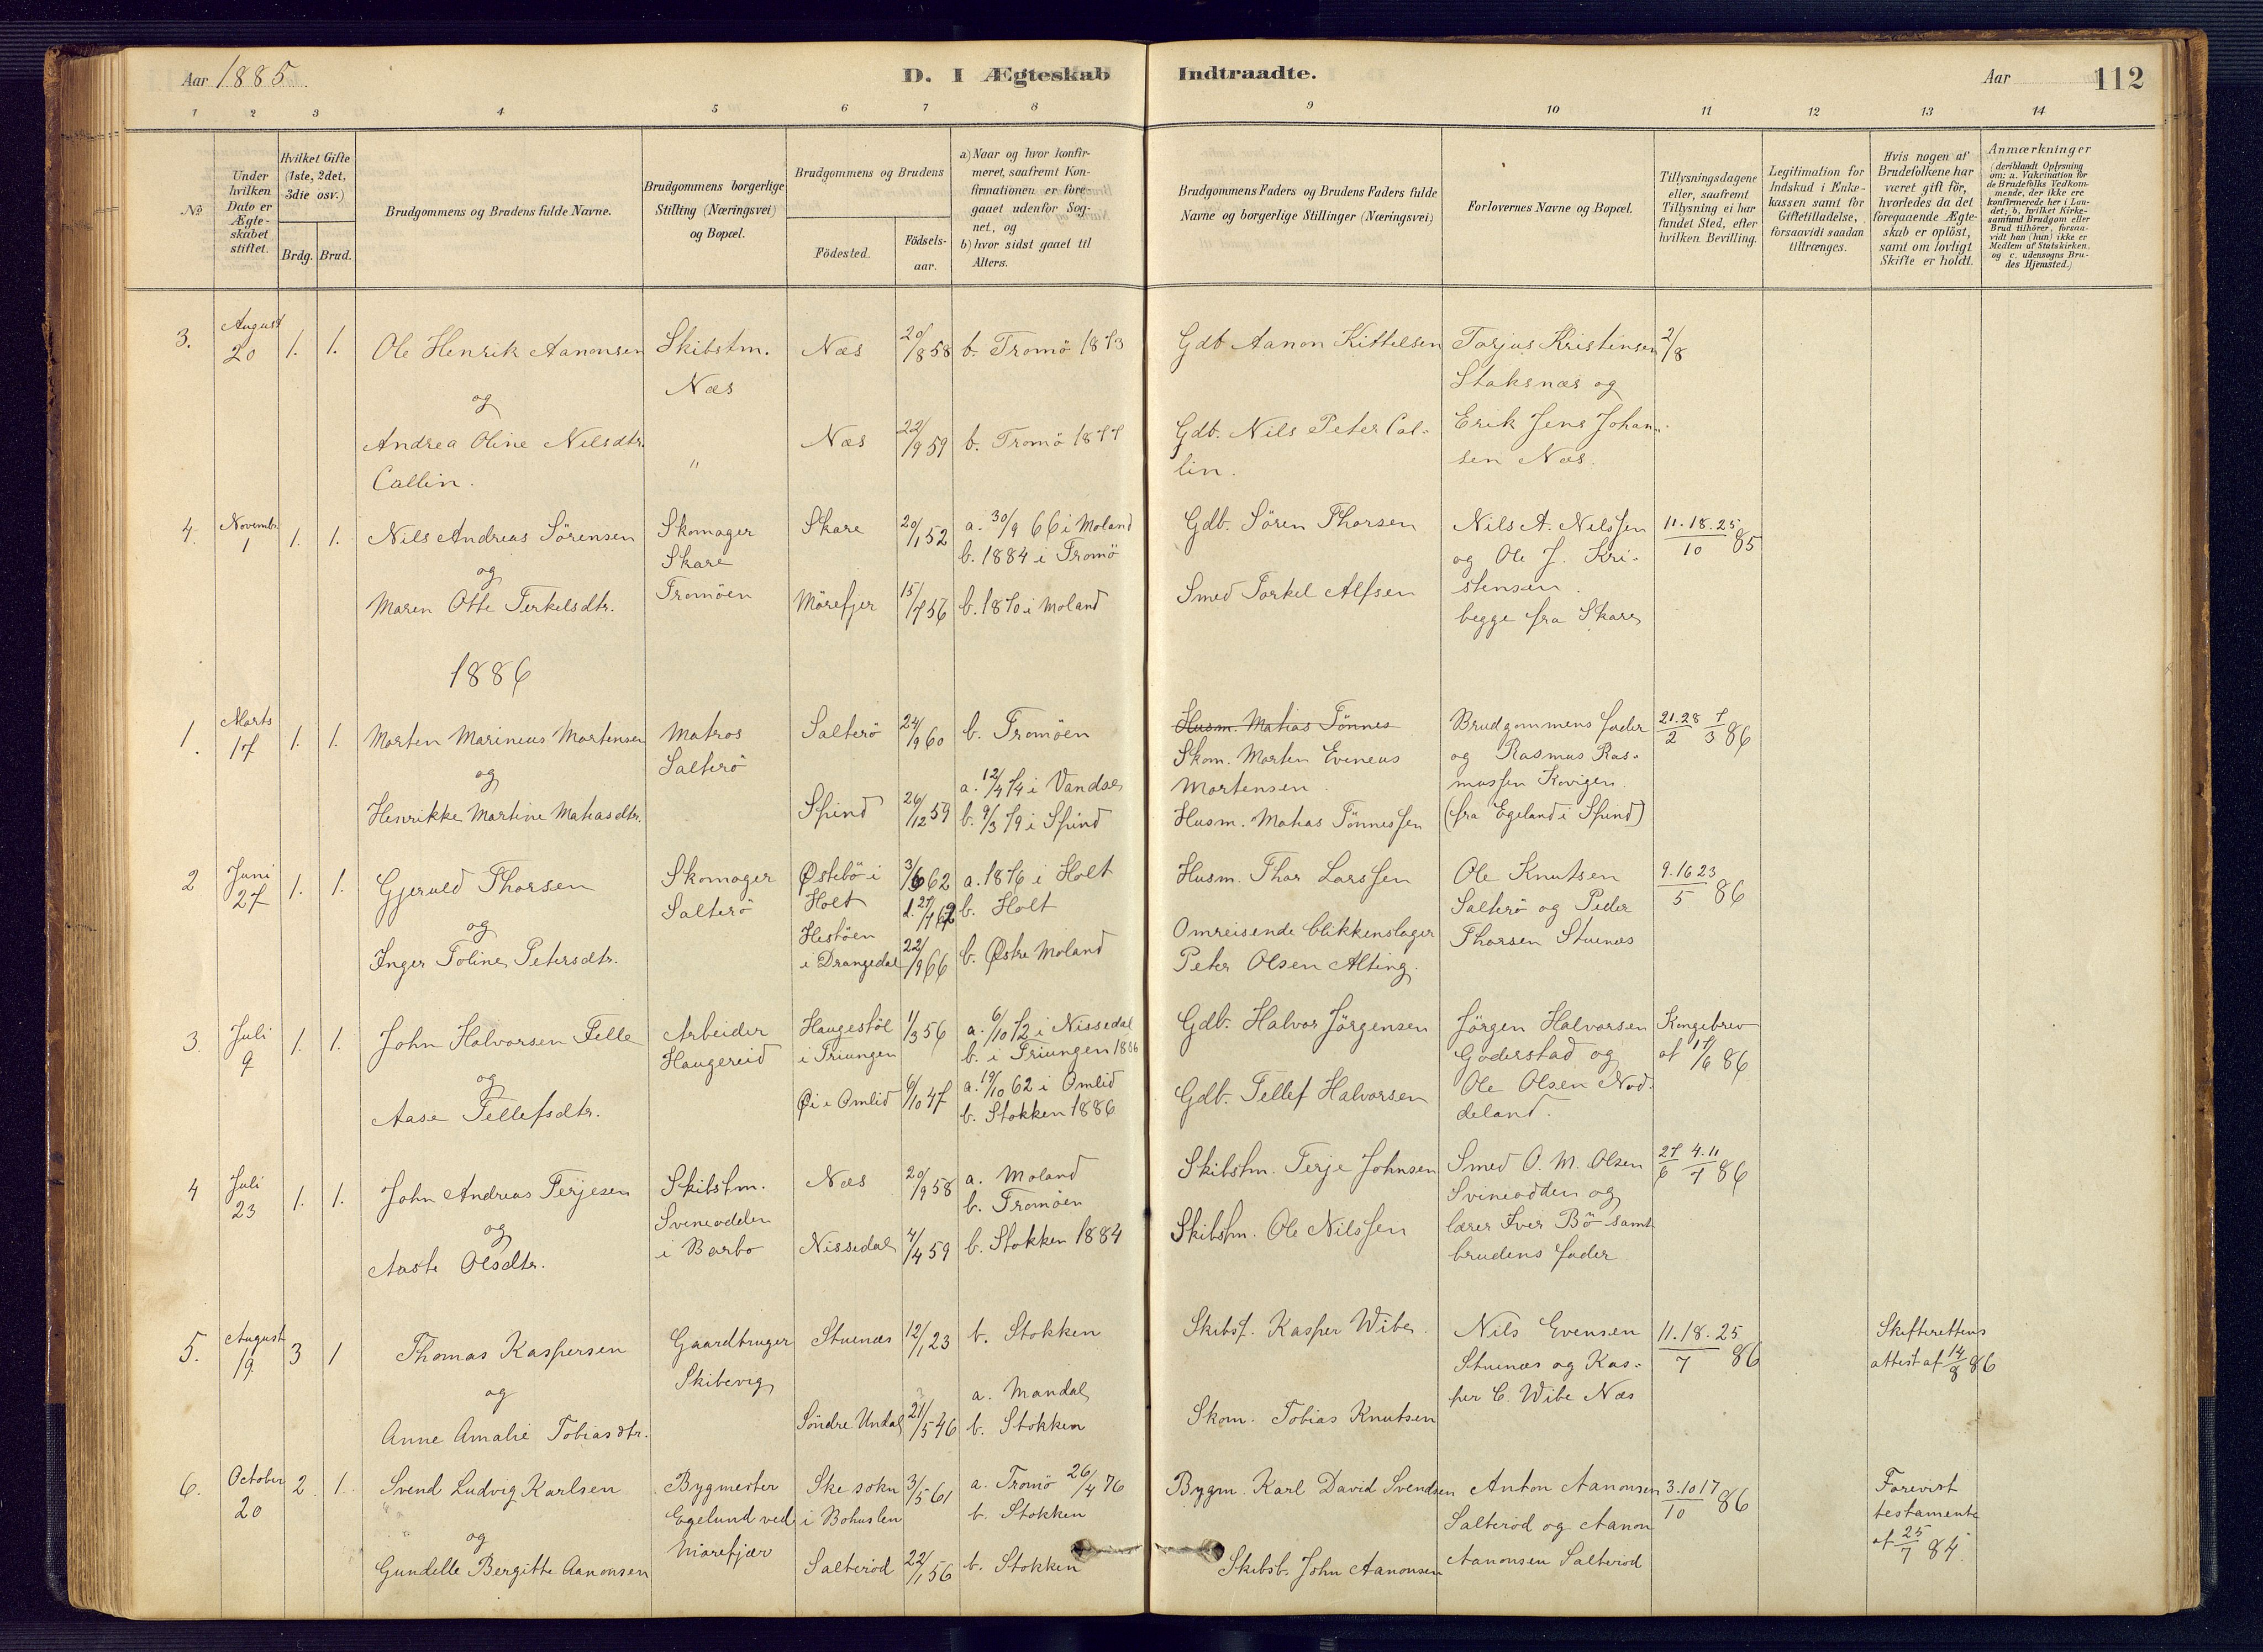 Aar 1885.
D. I Ægteskab Indtraadte.
Aar 112
1 2 3 4 5 6 7 8 9 10 11 12 13 14
№
Under hvilken Dato er Ægteskabet stiftet.
Hvilket Gifte (1ste, 2det, 3die osv.)
Brdg. Brud.
Brudgommens og Brudens fulde Navne.
Brudgommens borgerlige Stilling (Næringsvei) og Bopæl.
Brudgommens og Brudens
Födested. Födselsaar.
a) Naar og hvor konfirmeret, saafremt Konfirmationen er foregaaet udenfor Sognet, og
b) hvor sidst gaaet til Alters.
Brudgommens Faders og Brudens Faders fulde Navne og borgerlige Stillinger (Næringsvei)
Forlovernes Navne og Bopæl.
Tillysningsdagene eller, saafremt Tillysning ei har fundet Sted, efter hvilken Bevilling.
Legitimation for Indskud i Enkekassen samt for Giftetilladelse, forsaavidt saadan tiltrænges.
Hvis nogen af Brudefolkene har været gift för, hvorledes da det foregaaende Ægteskab er oplöst, samt om lovligt Skifte er holdt.
Anmærkninger
(deriblandt Oplysning om: a. Vakcination for de Brudefolks Vedkommende, der ikke ere konfirmerede her i Landet; b. hvilket Kirkesamfund Brudgom eller Brud tilhörer, forsaavidt han (hun) ikke er Medlem af Statskirken, og c. udensogns Brudes Hjemsted.)
3. August 20 1. 1. Ole Henrik Aanonsen Skibstm. Næs 20/8 58 b. Tromö 1873 Gdb Aanon Kittelsen Torjus Kristensen 2/8
og Næs Staksnæs og
Andrea Oline Nilsdtr. " Næs 22/9 59 b. Tromö 1877 Gdb. Nils Peter Cal- Erik Jens Johan-
Callin. lin. sen Næs.
4. Novembr. 1 1. 1. Nils Andreas Sörensen Skomager Skare 20/1 52 a. 30/9 66 i Moland Gdb. Sören Thorsen Nils A. Nilssen 11.18.25/10 85
og Skare b. 1884 i Tromö og Ole J. Kri-
Maren Otte Terkelsdtr. Tromöen Mörefjer 15/7 56 b. 1870 i Moland Smed Torkel Alfsen stensen.
begge fra Skare
1886
1. Marts 17 1. 1. Morten Marineus Mortensen Matros Salterö 24/9 60 b. Tromöen Husm. Matias Tönnes Brudgommens fader 21.28/2 7/3 86
og Salterö Skom. Morten Eveneus og Rasmus Ras-
a. 12/4 74 i Vandse Mortensen. mussen Kovigen.
Henrikke Martine Matiasdtr. Spind 26/12 59 b. 9/3 79 i Spind Husm. Matias Tönnessen (fra Egeland i Spind)
2 Juni 27 1. 1. Gjeruld Thorsen Skomager Østebö i 3/6 62 a. 1876 i Holt Husm. Thor Larssen Ole Knutsen 9.16 23/5 86
og Salterö Holt d. 27/7 62 b. Holt Salterö og Peder
Hestöen Omreisende blikkenslager Thorsen Stuenæs
Inger Toline Petersdtr. i Drangedal 22/9 66 b. Østre Moland Peter Olsen Alting.
3. Juli 9 1. 1. John Halvorsen Felle Arbeider Haugestöl 1/3 56 a. 6/10 72 i Nissedal Gdb. Halvor Jörgensen Jörgen Halvorsen Kongebrev
og Haugereid i Triungen b. i Triungen 1886 Goderstad og af 17/6 86
Aase Tellefsdtr. Øi i Omlid 6/10 47 a. 19/10 62 i Omlid Gdb. Tellef Halvorsen Ole Olsen Nod-
b. Stokken 1886 deland.
4 Juli 23 1. 1. John Andreas Terjesen Skibstm. Næs 20/9 58 a. Moland Skibstm. Terje Johnsen Smed O. M. Olsen 27/6 4.11/7 86
og Svineodden b. Tromöen Svineodden og
Aaste Olsdtr. i Barbo Nissedal 4/4 59 b. Stokken 1884 Skibstm. Ole Nilssen lærer Iver Bö samt
brudens fader
5. August 19. 3 1 Thomas Kaspersen Gaardbruger Stuenæs 12/1 23 b. Stokken Skibsf. Kasper Wibe. Nils Evensen 11.18.25/7 86 Skifterettens
og Skibevig Stuenæs og Kas- attest af 14/8 86
a. Mandal per C. Wibe Næs
Anne Amalie Tobiasdtr. Söndre Undal 21/5 46 b. Stokken Skom. Tobias Knutsen
6. October 20 2 1. Svend Ludvig Karlsen Bygmester Ske sokn 3/5 61 a. Tromö 26/4 76 Bygm. Karl David Svendsen Anton Aanonsen 3.10 17/10 86 Forevist
og Egelund ved i Bohuslen b. Stokken Salteröd og Aanon testamente
Gundelle Bergitte Aanonsen Mörefjær Salteröd 22/1 56 b. Stokken Skibsb. John Aanonsen Aanonsen Salteröd af 25/7 84.